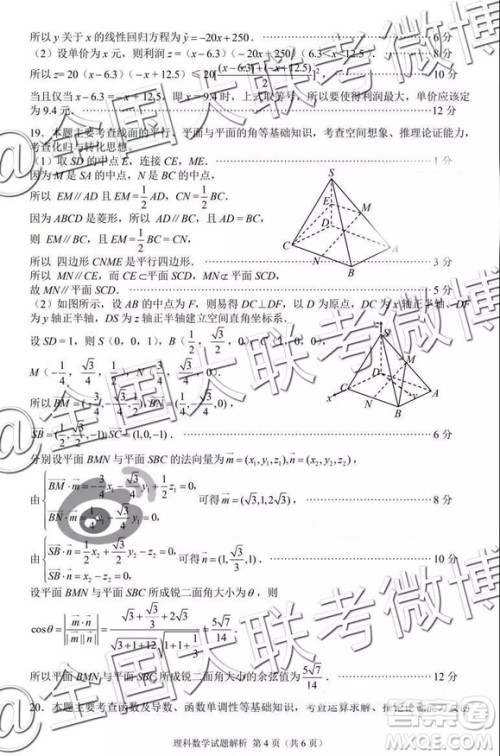 所以 y 关于 x 的线性回归方程为 ŷ=−20x+250. 6 分
(2)设单价为 x 元,则利润 z=(x−6.3)(−20x+250)(6.3<x<12.5) 8 分
所以 z=20(x−6.3)(−x+12.5)≤20[((x−6.3)+(−x+12.5))/2]² 10 分
当且仅当 x−6.3=−x+12.5,即 x=9.4 时,上式取等号,所以要使得利润最大,单价应该定
为 9.4 元. 12 分
19. 本题主要考查线面的平行、平面与平面的角等基础知识,考查空间想象、推理论证能力,
考查化归与转化思想.
(1)取 SD 的中点 E,连接 CE,ME. 1 分
因为 M 是 SA 的中点,N 是 BC 的中点,
所以 EM∥AD 且 EM=1/2 AD,CN=1/2 BC.
因为 ABCD 是菱形,所以 AD∥BC,且 AD=BC.
则 EM∥CN 且 EM=CN.
所以 四边形 CNME 是平行四边形. 3 分
所以 MN∥CE,而 CE⊂平面 SCD,MN⊄平面 SCD,
故 MN∥平面 SCD. 5 分
(2)如图所示,设 AB 的中点为 F,则易得 DC⊥DF,以 D 为坐标原点,DC 为 x 轴正半轴、DF
为 y 轴正半轴,DS 为 z 轴正半轴建立空间直角坐标系.
设 SD=1,则 S(0,0,1),B(1/2,√3/2,0),C(1,0,0),
所以
6 分
分别设平面 BMN 与平面 SBC 的法向量为 m=(x₁,y₁,z₁),n=(x₂,y₂,z₂),
由 可得 m=(√3,1,2√3) 8 分
由 { SB·n=1/2 x₂+√3/2 y₂−z₂=0, SC·n=x₂−z₂=0, 可得 n=(1,√3/3,1). 10 分
设平面 BMN 与平面 SBC 所成锐二面角大小为 θ,则
cosθ=|m·n|/(|m||n|)=(√3+√3/3+2√3)/(√(3+1+12)·√(1+1+1/3))=5√7/14.
所以平面 BMN 与平面 SBC 所成锐二面角大小的余弦值为 5√7/14. 12 分
20. 本题主要考查函数及导数、函数单调性等基础知识,考查运算求解、推理论证能力及函
理科数学试题解析 第 4 页(共 6 页)
S
E
M
D
A
C
N
B
S
M
D
C
N
B
A
x
@全国大联考微博
@全国大联考微博